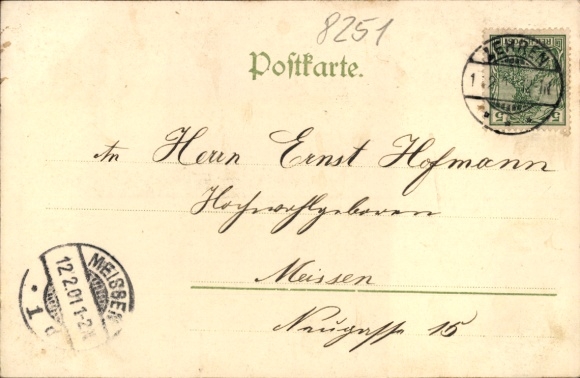 8251
Postkarte.
ZEHREN
An Herrn Ernst Hofmann
Hochwohlgeboren
Meissen
Neugasse 15
MEISSEN
12.2.01 1-2N
1 d
5 5